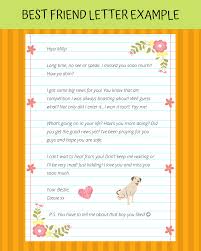 BEST FRIEND LETTER EXAMPLE
Hiya Milly!
Long time, no see or speak. I missed you sooo much!
How ya doin'?
I got some big news for you! You know that art
competition I was always boasting about? Well guess
what? Not only did I get into it, but I won! Can you
imagine?
What's going on in your life? Heard you're dancing! Did
you get the good news? I've been praying for you hope
you and your family are safe.
I can't wait to hear from you! Don't keep me waiting or
I'll be very mad! Just kidding! I miss you sooo much!
Your Bestie,
Dessie
xx
P.S. You have to tell me about that boy you liked 😊